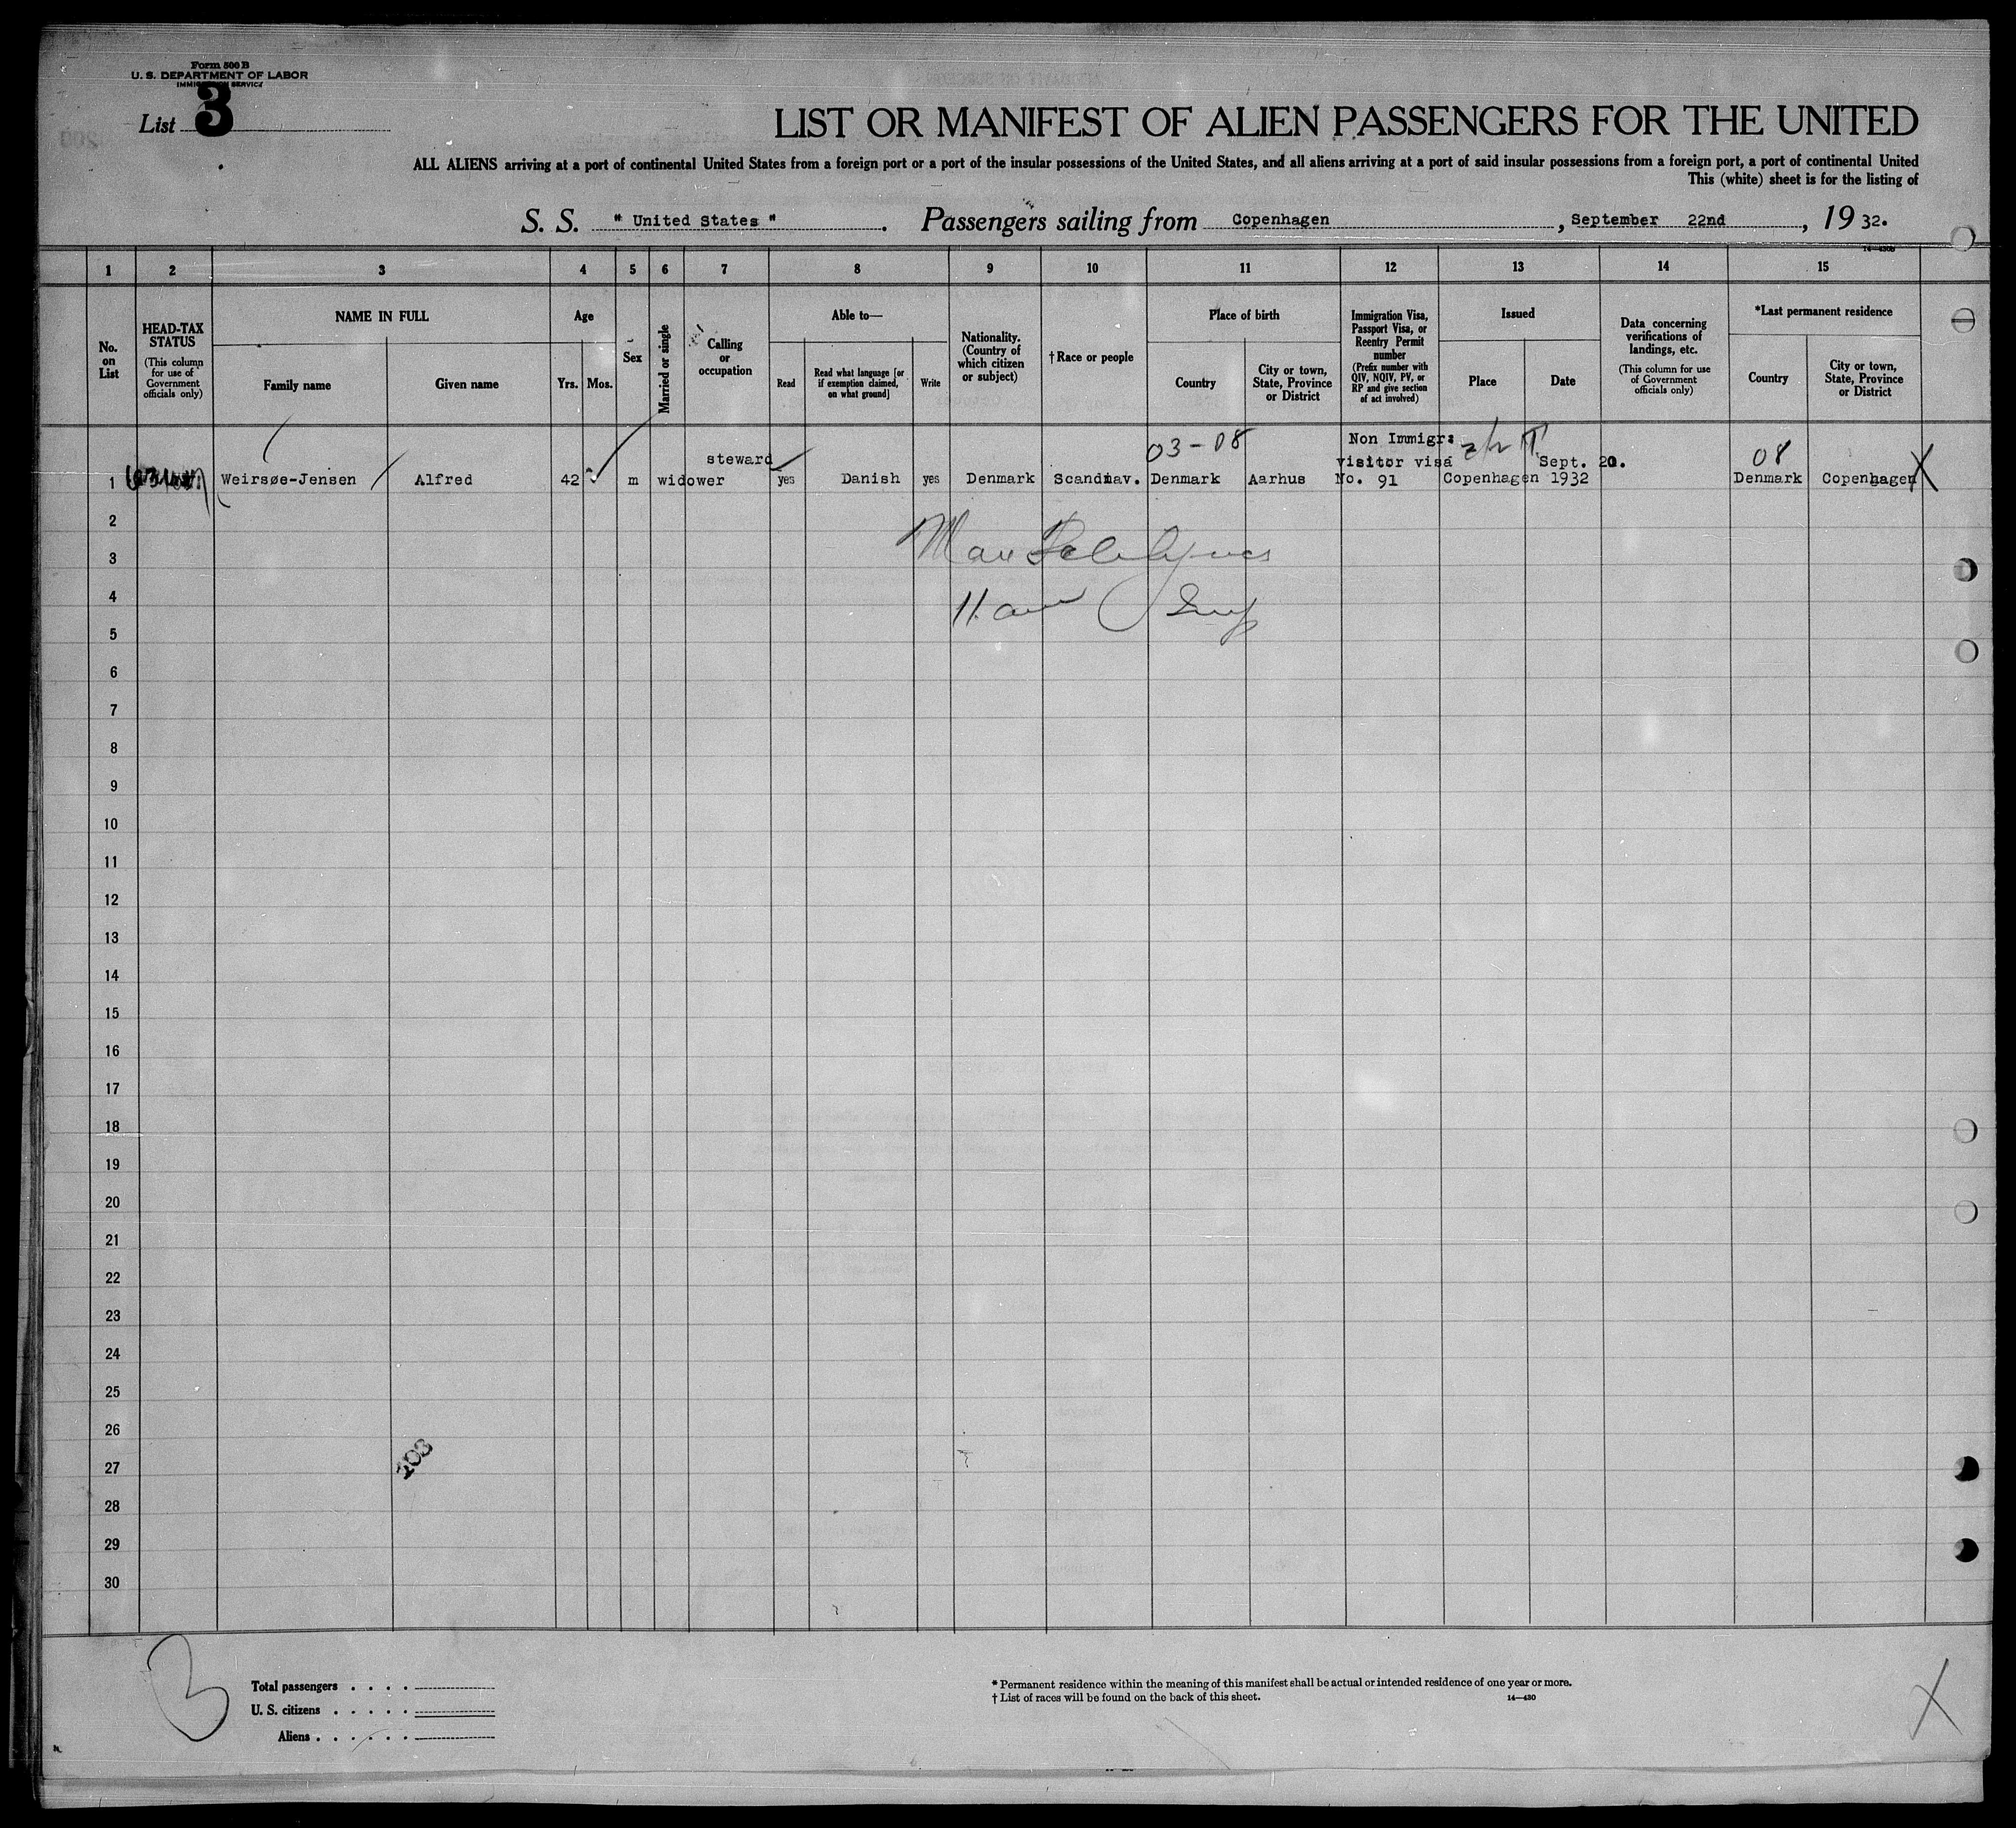 Form 500 B
U. S. DEPARTMENT OF LABOR
IMMIGRATION SERVICE
List 3
LIST OR MANIFEST OF ALIEN PASSENGERS FOR THE UNITED
ALL ALIENS arriving at a port of continental United States from a foreign port or a port of the insular possessions of the United States, and all aliens arriving at a port of said insular possessions from a foreign port, a port of continental United
This (white) sheet is for the listing of
S. S. "United States". Passengers sailing from Copenhagen, September 22nd, 1932.
14—430b
1 2 3 4 5 6 7 8 9 10 11 12 13 14 15
No. on List
HEAD-TAX STATUS
(This column for use of Government officials only)
NAME IN FULL
Family name
Given name
Age
Yrs.
Mos.
Sex
Married or single
Calling or occupation
Able to—
Read
Read what language [or if exemption claimed, on what ground]
Write
Nationality. (Country of which citizen or subject)
†Race or people
Place of birth
Country
City or town, State, Province or District
Immigration Visa, Passport Visa, or Reentry Permit number
(Prefix number with QIV, NQIV, PV, or RP and give section of act involved)
Issued
Place
Date
Data concerning verifications of landings, etc.
(This column for use of Government officials only)
*Last permanent residence
Country
City or town, State, Province or District
03-08
Non Immigr:
steward
visitor visa
Sept. 20.
08
1 Weirsøe-Jensen Alfred 42 m widower yes Danish yes Denmark Scandinav. Denmark Aarhus No. 91 Copenhagen 1932 Denmark Copenhagen X
2
3
4
5
6
7
8
9
10
11
12
13
14
15
16
17
18
19
20
21
22
23
24
25
26
27
28
29
30
203
3
Total passengers . . . .
U. S. citizens . . . . .
Aliens . . . . . .
* Permanent residence within the meaning of this manifest shall be actual or intended residence of one year or more.
† List of races will be found on the back of this sheet.
14—430
X